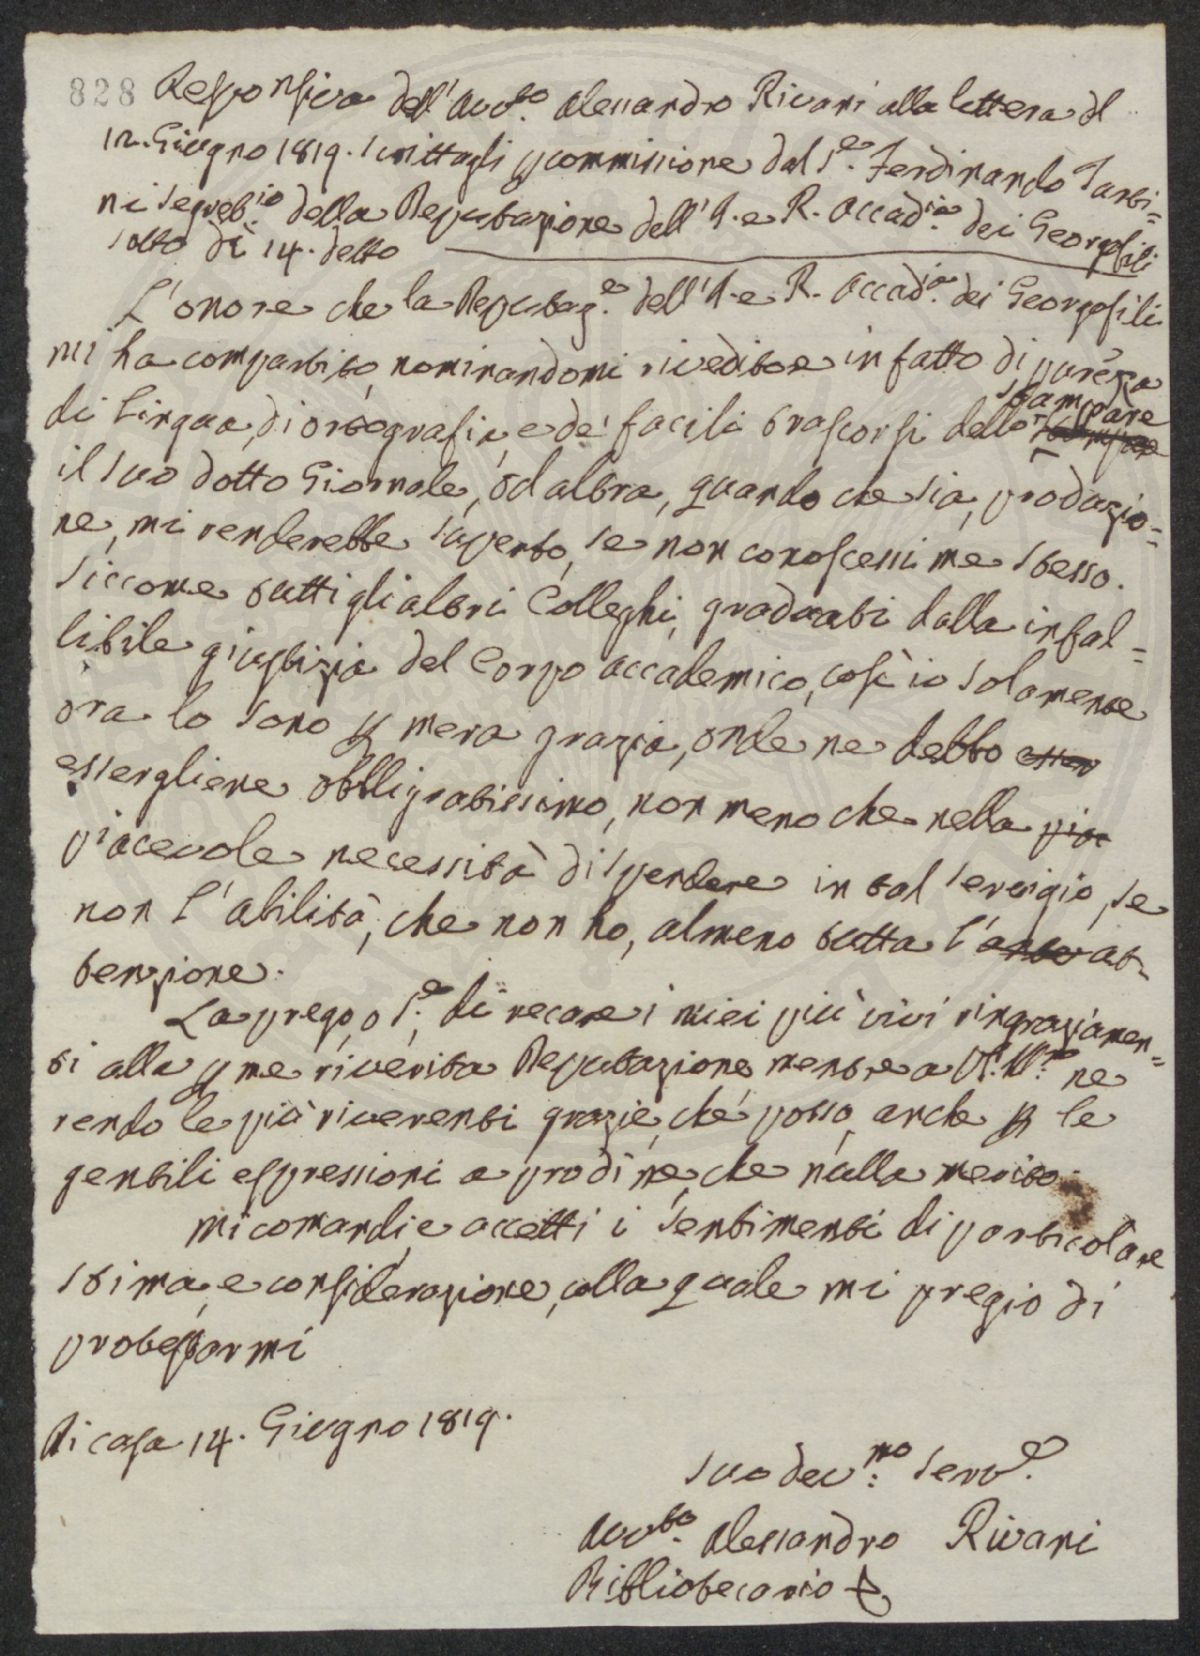 828 Responsiva dell'Avv.to Alessandro Rivani alla lettera d
12. Giugno 1819. scrittagli p commissione dal S.e Ferdinando Tarti=
ni Segret.io della Deputazione dell'I. e R. Accad.ia dei Georgofili
sotto dì 14. detto
L'onore che la Deputaz.e dell'I. e R. Accad.ia dei Georgofili
mi ha compartito, nominandomi riveditore in fatto di purezza
di lingua, di ortografia, e de' facili trascorsi dello stampare
il suo dotto Giornale, od altra, quando che sia, produzio=
ne, mi renderebbe superbo, se non conoscessi me stesso.
Siccome tutti gli altri Colleghi, graduati dalla infal=
libile giustizia del Corpo accademico, così io solamente
ora lo sono p mera grazia, onde ne debbo esser
essergliene obbligatissimo, non meno che nella pia
piacevole necessità di spendere in tal servigio, se
non l'abilità, che non ho, almeno tutta l' at=
tenzione.
La prego, o S.e, di recare i miei più vivi ringraziamen=
ti alla p me riverita Deputazione, mentre a V.S. Ill.ma ne
rendo le più riverenti grazie, che posso, anche p le
gentili espressioni a pro di me, che nulla merito.
Mi comandi, e accetti i sentimenti di particolare
stima, e considerazione, colla quale mi pregio di
protestarmi
Di casa 14. Giugno 1819.
Suo dev.mo Serv.e
Avv.to Alessandro Rivani
Bibliotecario